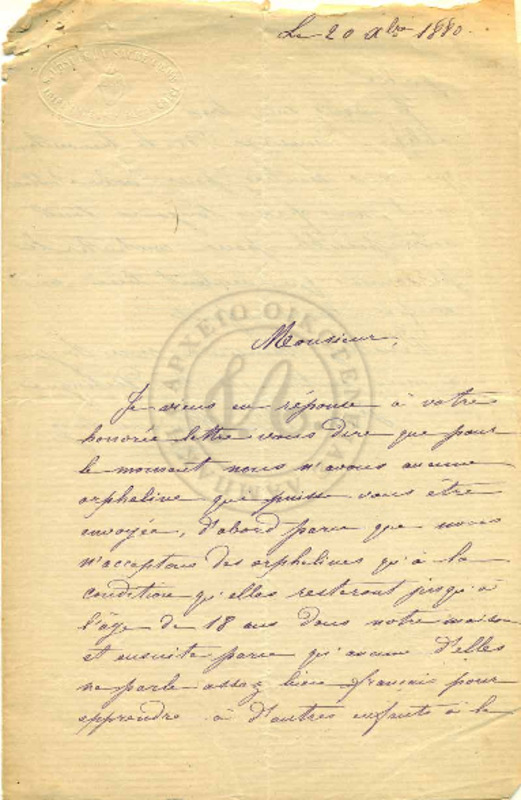 Le 20 Xbre 1880.
ΑΡΧΕΙΟ ΟΙΚΟΓΕΝΕΙΑΣ ΛΑΜΠΑΚΗ
Monsieur,
Je viens en réponse à votre
honorée lettre vous dire que pour
le moment nous n'avons aucune
orpheline qui puisse vous être
envoyée, d'abord parce que nous
n'acceptons des orphelines qu'à la
condition qu'elles resteront jusqu'à
l'âge de 18 ans dans notre maison
et ensuite parce qu'aucune d'elles
ne parle assez bien français pour
apprendre à d'autres enfants à le